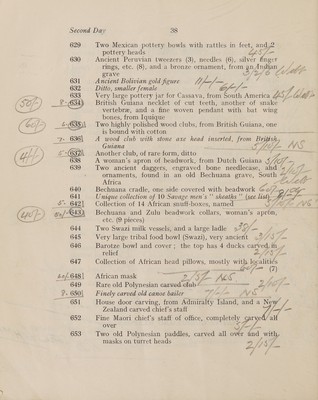 Second Day 38
629 Two Mexican pottery bowls with rattles in feet, and 2
pottery heads
630 Ancient Peruvian tweezers (3), needles (6), silver finger
rings, etc. (8), and a bronze ornament, from an Indian
grave
631 Ancient Bolivian gold figure
632 Ditto, smaller female
633 Very large pottery jar for Cassava, from South America
634 British Guiana necklet of cut teeth, another of snake
vertebræ, and a fine woven pendant with bat wing
bones, from Iquique
635 Two highly polished wood clubs, from British Guiana, one
is bound with cotton
636 A wood club with stone axe head inserted, from British
Guiana NS
637 Another club, of rare form, ditto
638 A woman's apron of beadwork, from Dutch Guiana
639 Two ancient daggers, engraved bone needlecase, and
ornaments, found in an old Bechuana grave, South
Africa
640 Bechuana cradle, one side covered with beadwork
641 Unique collection of 10 Savage men's "sheaths" (see list)
642 Collection of 14 African snuff boxes, named NS
643 Bechuana and Zulu beadwork collars, woman's apron,
etc. (9 pieces)
644 Two Swazi milk vessels, and a large ladle
645 Very large tribal food bowl (Swazi), very ancient
646 Barotse bowl and cover; the top has 4 ducks carved in
relief
647 Collection of African head pillows, mostly with localities
(7)
648 African mask NS
649 Rare old Polynesian carved club
650 Finely carved old canoe bailer NS
651 House door carving, from Admiralty Island, and a New
Zealand carved chief's staff
652 Fine Maori chief's staff of office, completely carved all
over
653 Two old Polynesian paddles, carved all over and with
masks on turret heads